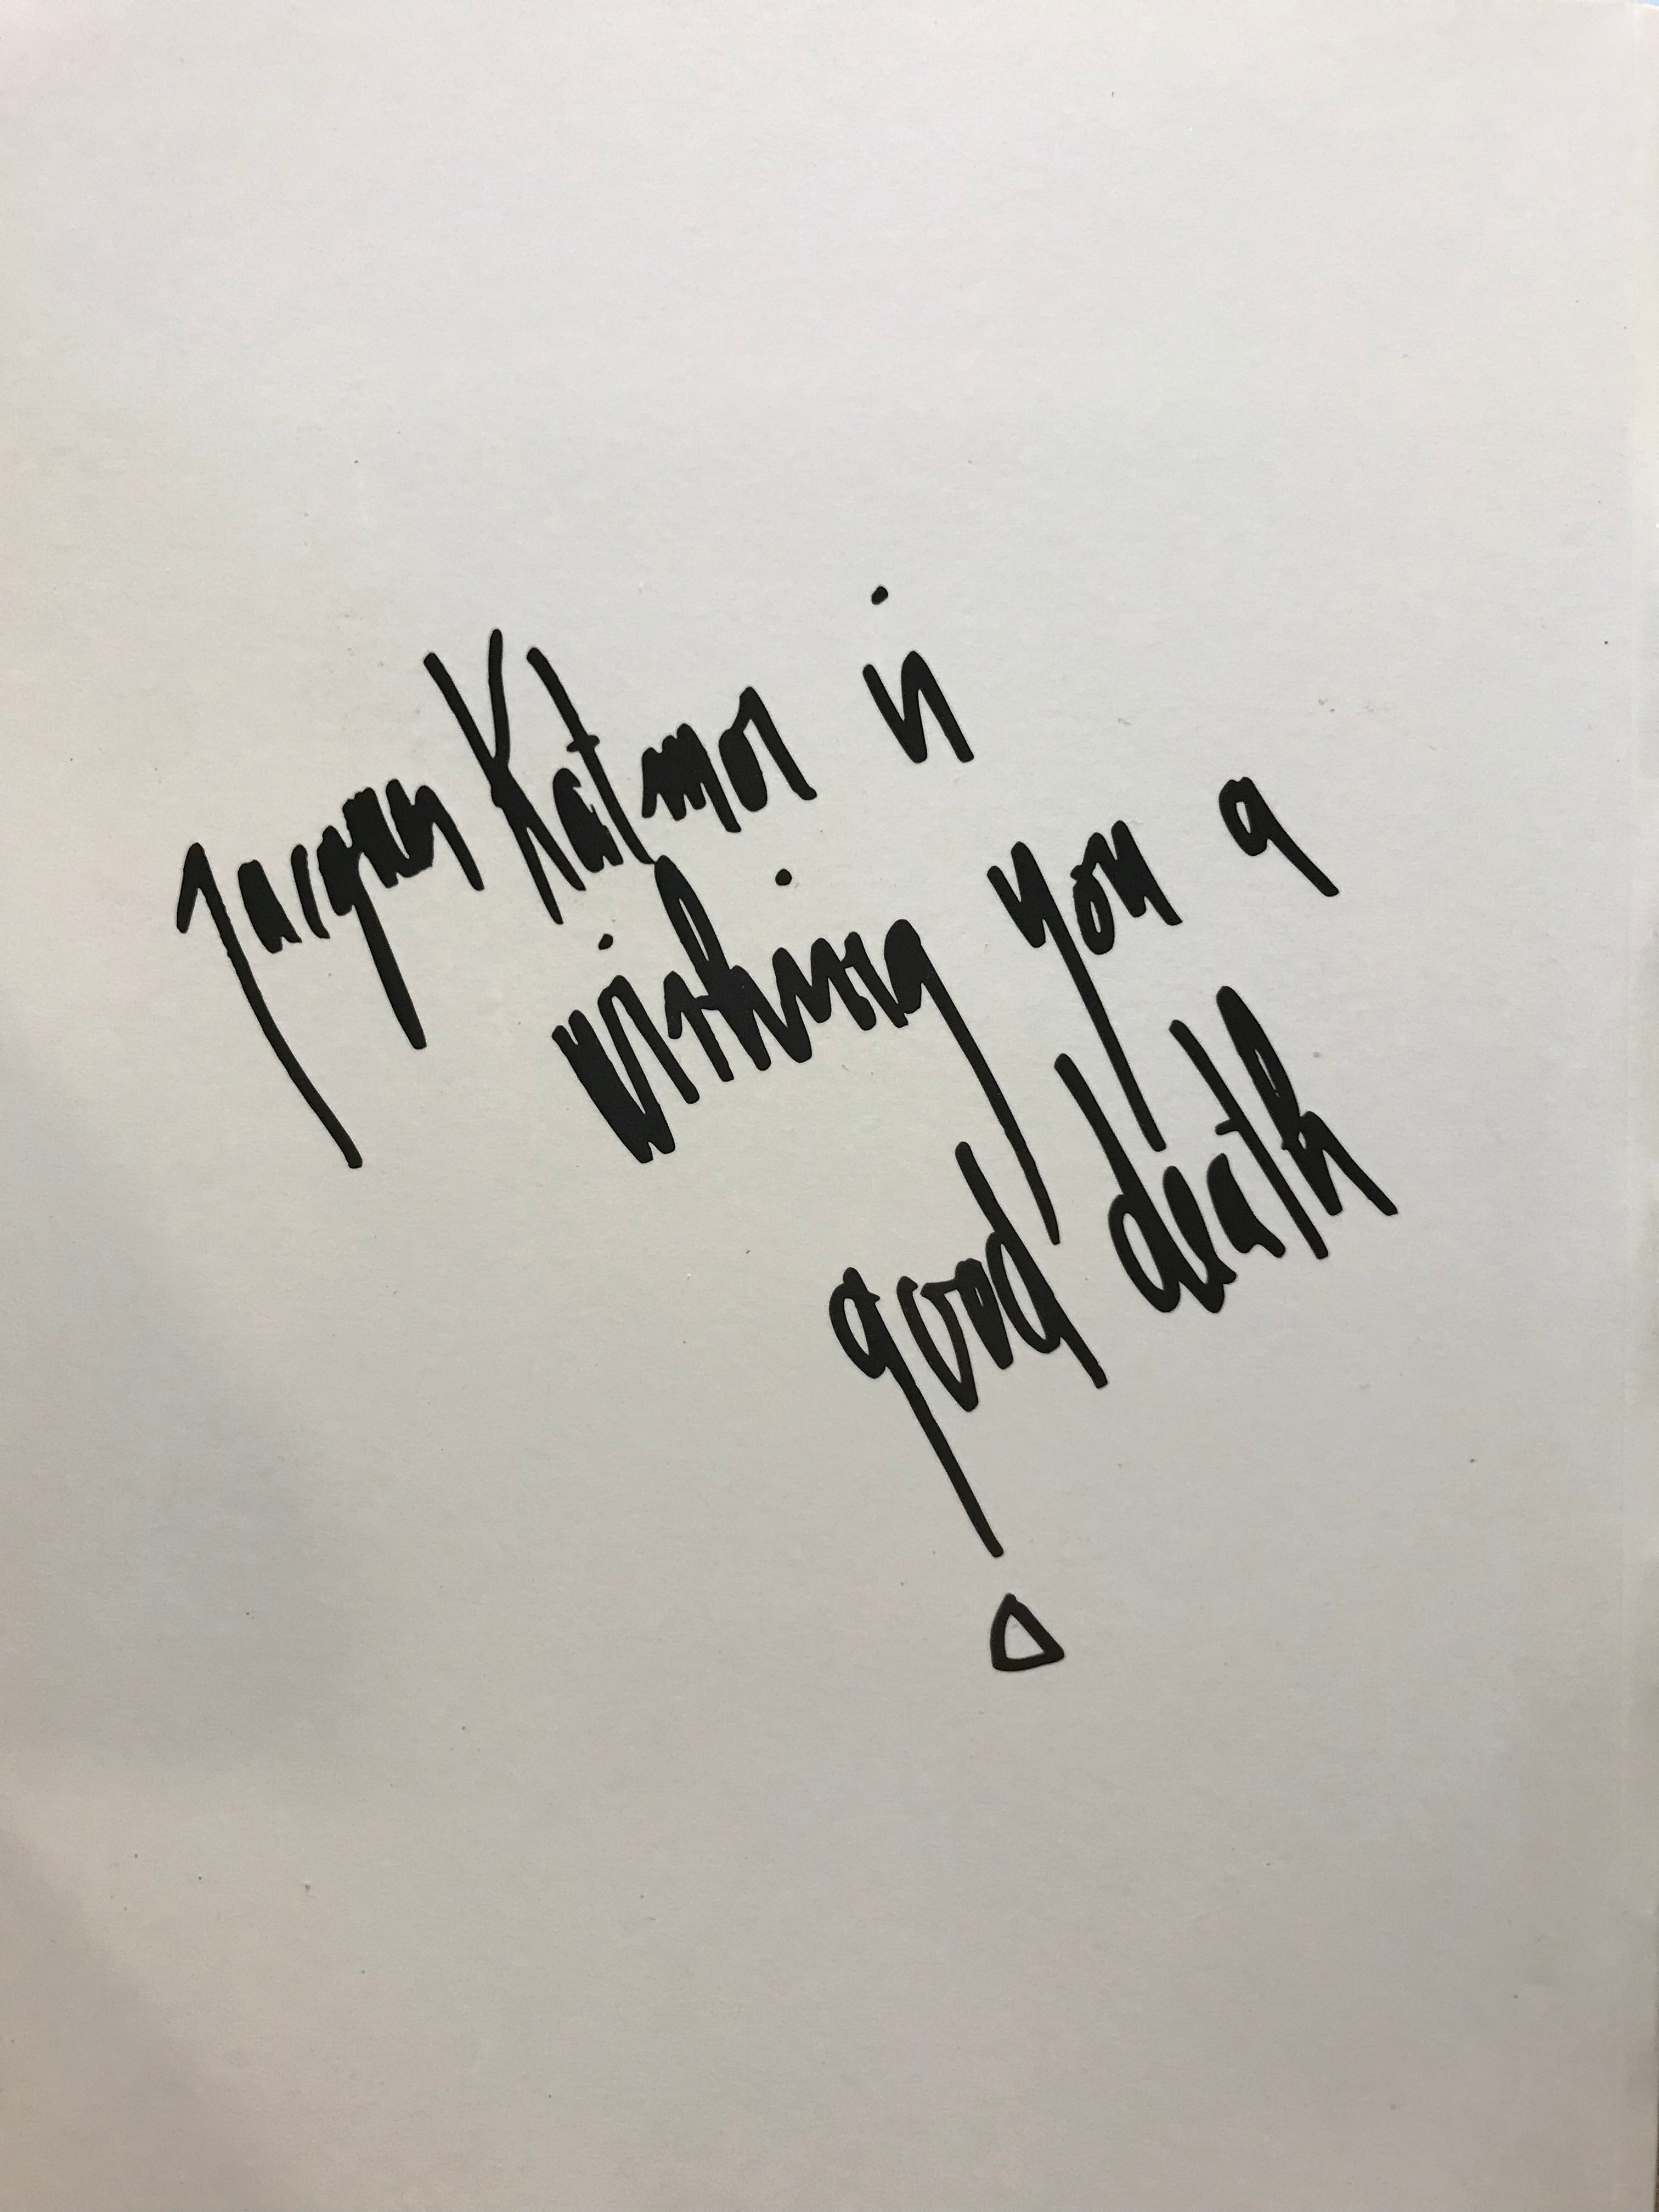 Jacques Katmor is
wishing you a
good death